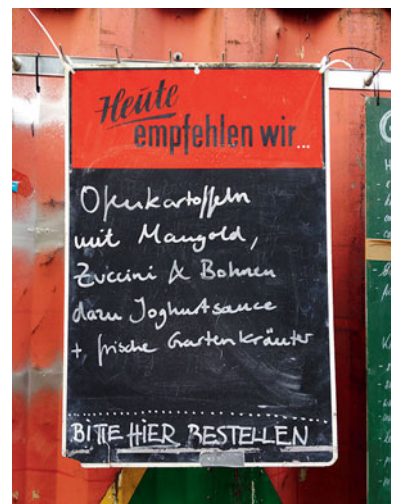 Heute
empfehlen wir...
Ofenkartoffeln
mit Mangold,
Zuccini & Bohnen
dazu Joghurtsauce
+ frische Gartenkräuter
BITTE HIER BESTELLEN